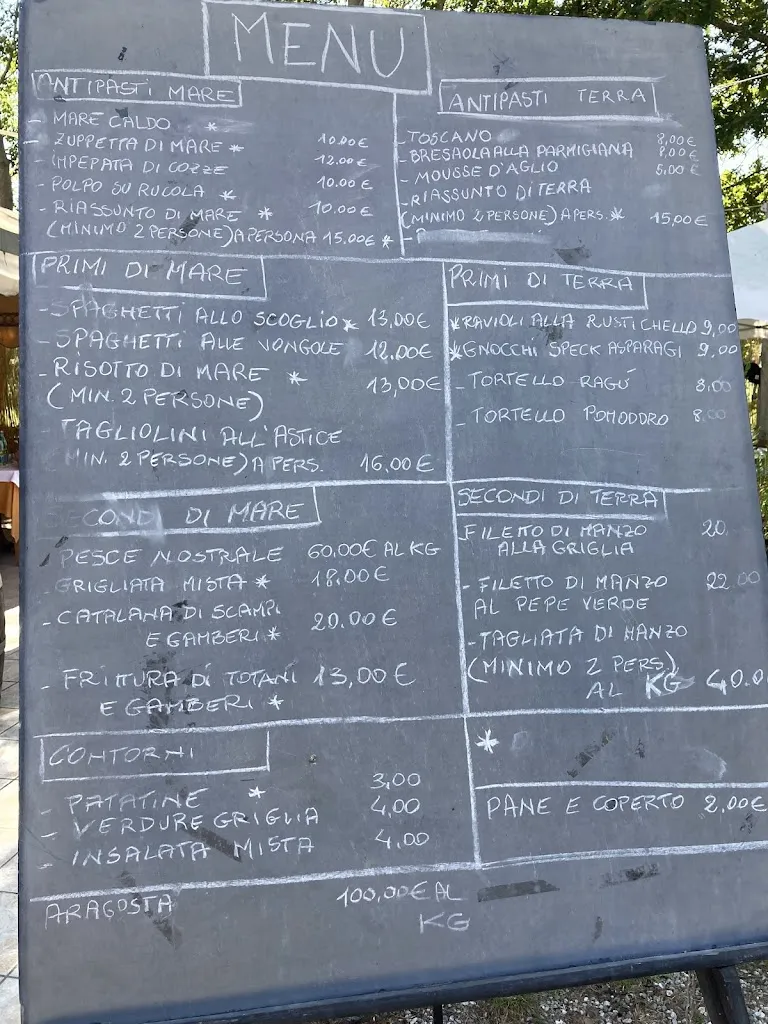 MENU
ANTIPASTI MARE
- MARE CALDO *
- ZUPPETTA DI MARE * 10.00€
- IMPEPATA DI COZZE 12.00€
- POLPO SU RUCOLA * 10.00 €
- RIASSUNTO DI MARE * 10.00€
(MINIMO 2 PERSONE) A PERSONA 15.00€ *
ANTIPASTI TERRA
- TOSCANO 8,00€
- BRESAOLA ALLA PARMIGIANA 8,00€
- MOUSSE D'AGLIO 5,00€
- RIASSUNTO DI TERRA
(MINIMO 2 PERSONE) A PERS. * 15,00€
PRIMI DI MARE
- SPAGHETTI ALLO SCOGLIO * 13,00€
- SPAGHETTI ALLE VONGOLE 12.00€
- RISOTTO DI MARE * 13,00€
(MIN. 2 PERSONE)
- TAGLIOLINI ALL'ASTICE
(MIN. 2 PERSONE) A PERS. 16,00€
PRIMI DI TERRA
* RAVIOLI ALLA RUSTICHELLO 9,00
* GNOCCHI SPECK ASPARAGI 9,00
- TORTELLO RAGÚ 8,00
- TORTELLO POMODORO 8,00
SECONDI DI MARE
- PESCE NOSTRALE 60.00€ AL KG
- GRIGLIATA MISTA * 18,00€
- CATALANA DI SCAMPI 20.00€
E GAMBERI *
- FRITTURA DI TOTANI 13,00€
E GAMBERI *
SECONDI DI TERRA
FILETTO DI MANZO 20.
ALLA GRIGLIA
- FILETTO DI MANZO 22.00
AL PEPE VERDE
- TAGLIATA DI MANZO
(MINIMO 2 PERS.)
AL KG 40.0
CONTORNI
- PATATINE * 3,00
- VERDURE GRIGLIA 4,00
- INSALATA MISTA 4,00
*
PANE E COPERTO 2,00€
ARAGOSTA 100,00€ AL
KG